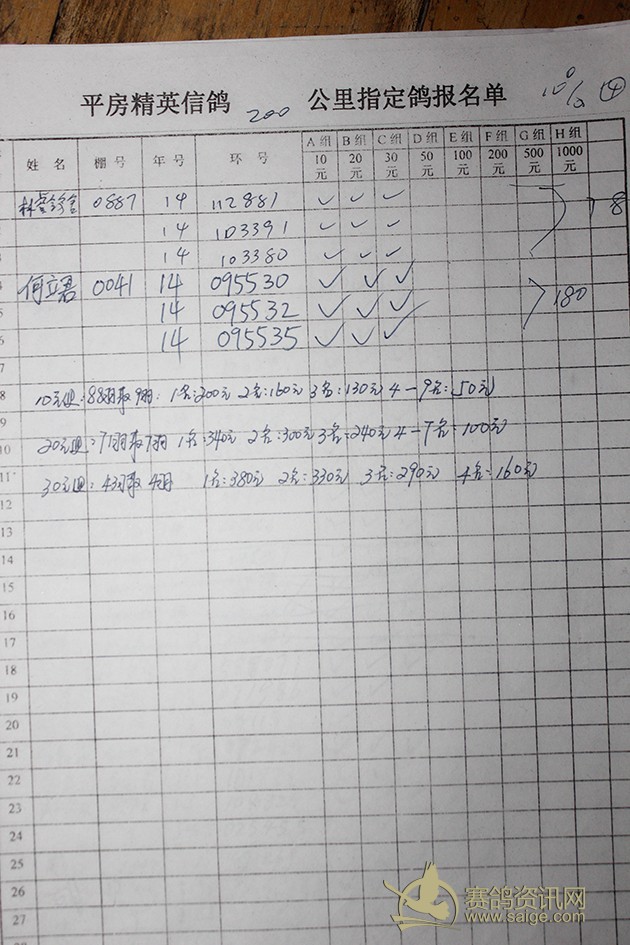 平房精英信鸽 200 公里指定鸽报名单 10% ④
姓名 棚号 年号 环号 A组 10元 B组 20元 C组 30元 D组 50元 E组 100元 F组 200元 G组 500元 H组 1000元
0887 14 112881 ✓ ✓ ✓
14 103391 ✓ ✓ ✓
3 14 103380 ✓ ✓ ✓
何立君 0041 14 095530 ✓ ✓ ✓
5 14 095532 ✓ ✓ ✓ 180
6 14 095535 ✓ ✓ ✓
7
8 10元组:88羽取9羽: 1名:200元 2名:160元 3名:130元 4-9名:50元
20元组:71羽取7羽 1名:340元 2名:300元 3名:240元 4-7名:100元
10
11 30元组:43羽取4羽 1名:380元 2名:330元 3名:290元 4名:160元
12
13
14
15
16
17
18
19
20
21
22
23
24
25
26
27
赛鸽资讯网
www.saige.com